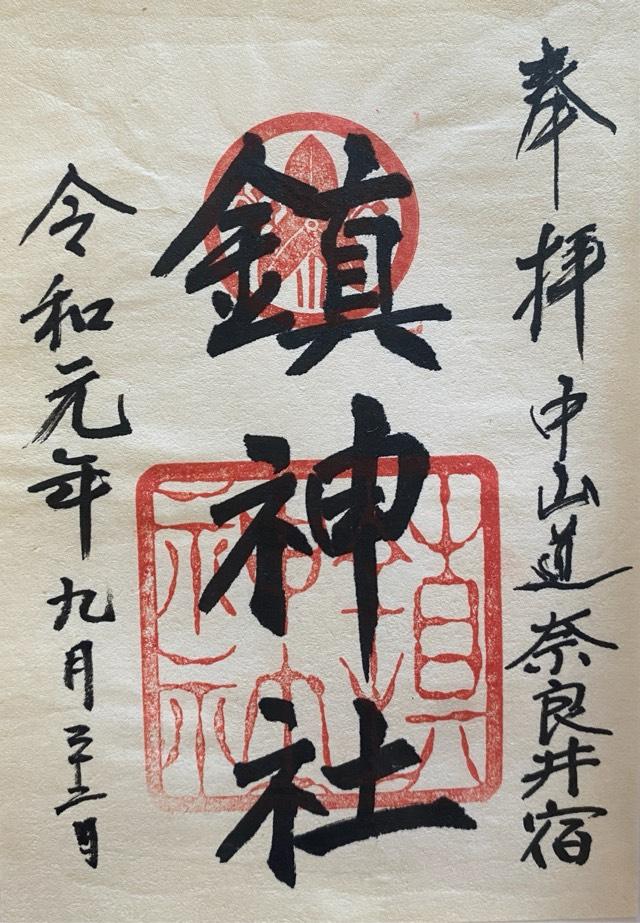 奉拝 中山道奈良井宿
鎮神社
令和元年九月二十二日